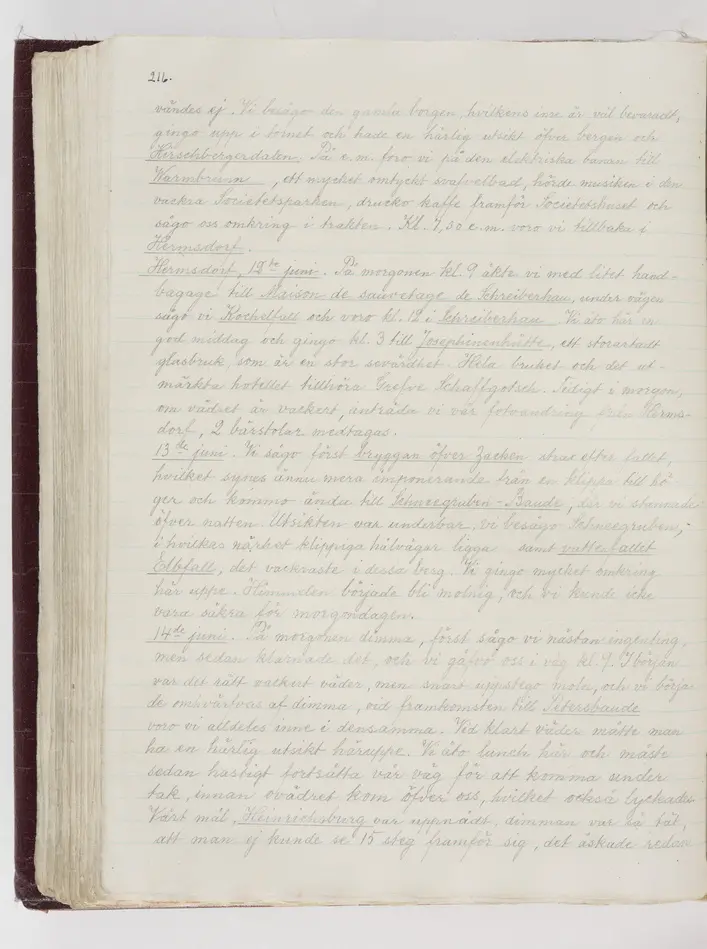 216.
vändes ej. Vi besågo den gamla borgen, hvilkens inre är väl bevaradt,
gingo upp i tornet och hade en härlig utsikt öfver bergen och
Hirschbergerdalen. På e.m. foro vi på den elektriska banan till
Warmbrunn, ett mycket omtyckt svafvelbad, hörde musiken i den
vackra Societetsparken, drucko kaffe framför Societetshuset och
sågo oss omkring i trakten. Kl. 7,30 e.m. voro vi tillbaka i
Hermsdorf.
Hermsdorf, 12te juni. På morgonen kl. 9 åkte vi med litet hand-
bagage till Maison de sauvetage de Schreiberhau, under vägen
sågo vi Kochelfall och voro kl. 12 i Schreiberhau. Vi åto här en
god middag och gingo kl. 3 till Josephinenhütte, ett storartadt
glasbruk, som är en stor sevärdhet. Hela bruket och det ut-
märkta hotellet tillhöra Grefve Schaffgotsch. Tidigt i morgon,
om vädret är vackert, anträda vi vår fotvandring från Herms-
dorf, 2 bärstolar medtagas.
13de juni. Vi sågo först bryggan öfver Zacken strax efter fallet,
hvilket synes ännu mera imponerande från en klippa till
ger och kommo ända till Schneegruben-Baude, där vi stannade
öfver natten. Utsikten var underbar, vi besågo Schneegruben,
i hvilkas närhet klippiga hålvägar ligga samt vattenfallet
Elbfall, det vackraste i dessa berg. Vi gingo mycket omkring
här uppe. Himmelen började bli molnig, och vi kunde icke
vara säkra för morgondagen.
14de juni. På morgonen dimma, först sågo vi nästan ingenting,
men sedan klarnade det, och vi gåfvo oss i väg kl. 9. I början
var det rätt vackert väder, men snart uppstego moln, och vi börja-
de omhvärfvas af dimma, vid framkomsten till Petersbaude
voro vi alldeles inne i densamma. Vid klart väder måtte man
ha en härlig utsikt häruppe. Vi åto lunch här och måste
sedan hastigt fortsätta vår väg för att komma under
tak, innan ovädret kom öfver oss, hvilket också lyckades.
Vårt mål, Heinrichsburg var uppnådt, dimman var så tät,
att man ej kunde se 15 steg framför sig, det åskade redan